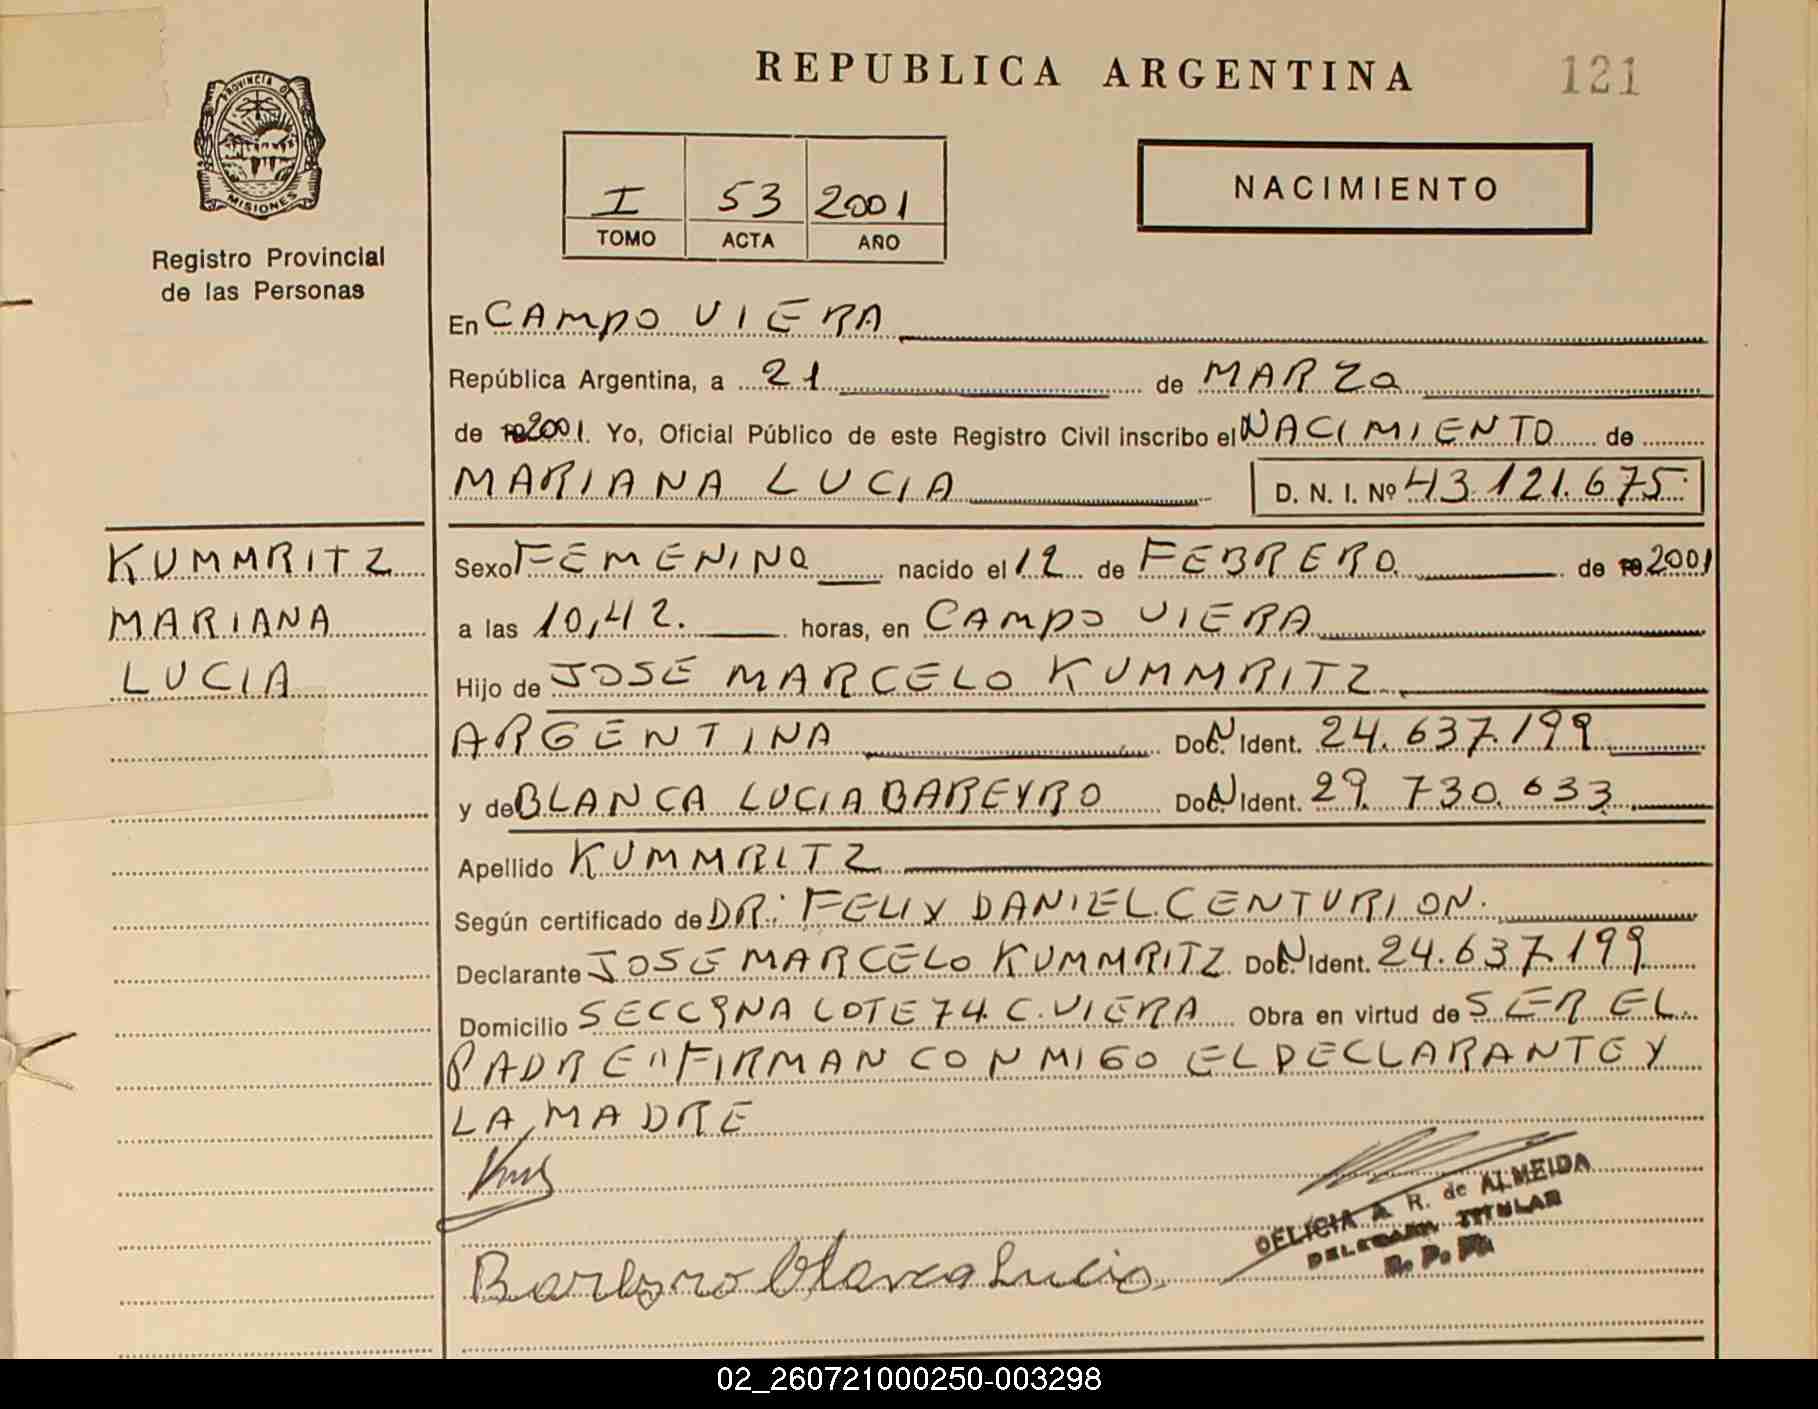 REPUBLICA ARGENTINA
121
PROVINCIA DE
MISIONES
Registro Provincial
de las Personas
I 53 2001
TOMO ACTA AÑO
NACIMIENTO
En CAMPO VIERA
República Argentina, a 21 de MARZO
de 2001. Yo, Oficial Público de este Registro Civil inscribo el NACIMIENTO de
MARIANA LUCIA D. N. I. Nº 43.121.675
KUMMRITZ
MARIANA
LUCIA
Sexo FEMENINO nacido el 12 de FEBRERO de 2001
a las 10,42. horas, en CAMPO VIERA
Hijo de JOSE MARCELO KUMMRITZ
ARGENTINA Doc. N Ident. 24.637.199
y de BLANCA LUCIA BAREYRO Doc. N Ident. 29.730.633
Apellido KUMMRITZ
Según certificado de DR: FELIX DANIEL CENTURION.
Declarante JOSE MARCELO KUMMRITZ Doc. N Ident. 24.637.199
Domicilio LOTE 74. C. VIERA Obra en virtud de SER EL
PADRE "FIRMAN CONMIGO EL DECLARANTE Y
LA MADRE
DELICIA A. R. de ALMEIDA
DELEGADA TITULAR
R. P. P.
Bareyro Blanca Lucia
02_260721000250-003298